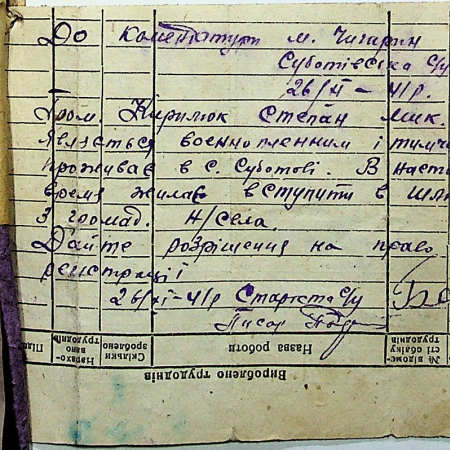 До коменда́тури м. Чигирин
Суботівська с/у
26/XI – 41р.
Гром. Кирилюк Степан Мик.
являється военнопленним і тимч
проживає в с. Суботові. В наст
время жилає вступити в шлю
з громад. Н/села.
Дайте розрішення на право
реистрації
26/XI–41р Староста с/у
Писар
Підп
Нарахо-
вано
трудоднів
Скільки
зроблено
Назва роботи
№ відомо-
сті обліку
трудоднів
Вироблено трудоднів